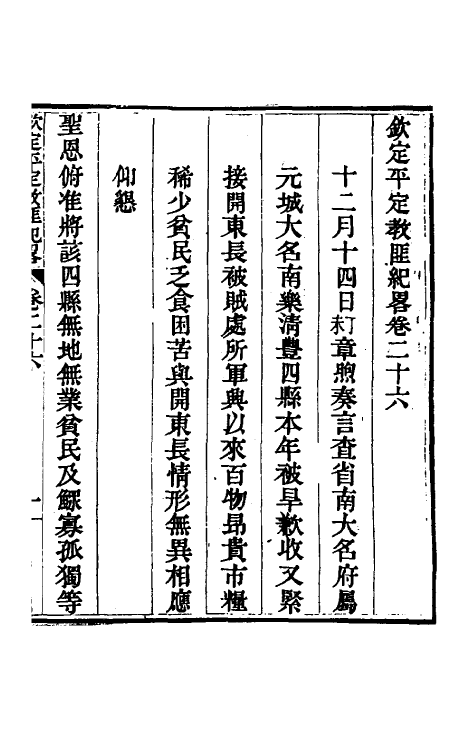 欽定平定教匪紀畧卷二十六
十二月十四日章煦奏言查省南大名府屬
元城大名南樂清豐四縣本年被旱歉收又緊
接開東長被賊處所軍興以來百物昂貴市糧
稀少貧民乏食困苦與開東長情形無異相應
仰懇
聖恩俯准將該四縣無地無業貧民及鰥寡孤獨等
欽定平定教匪紀畧 卷二十六 一